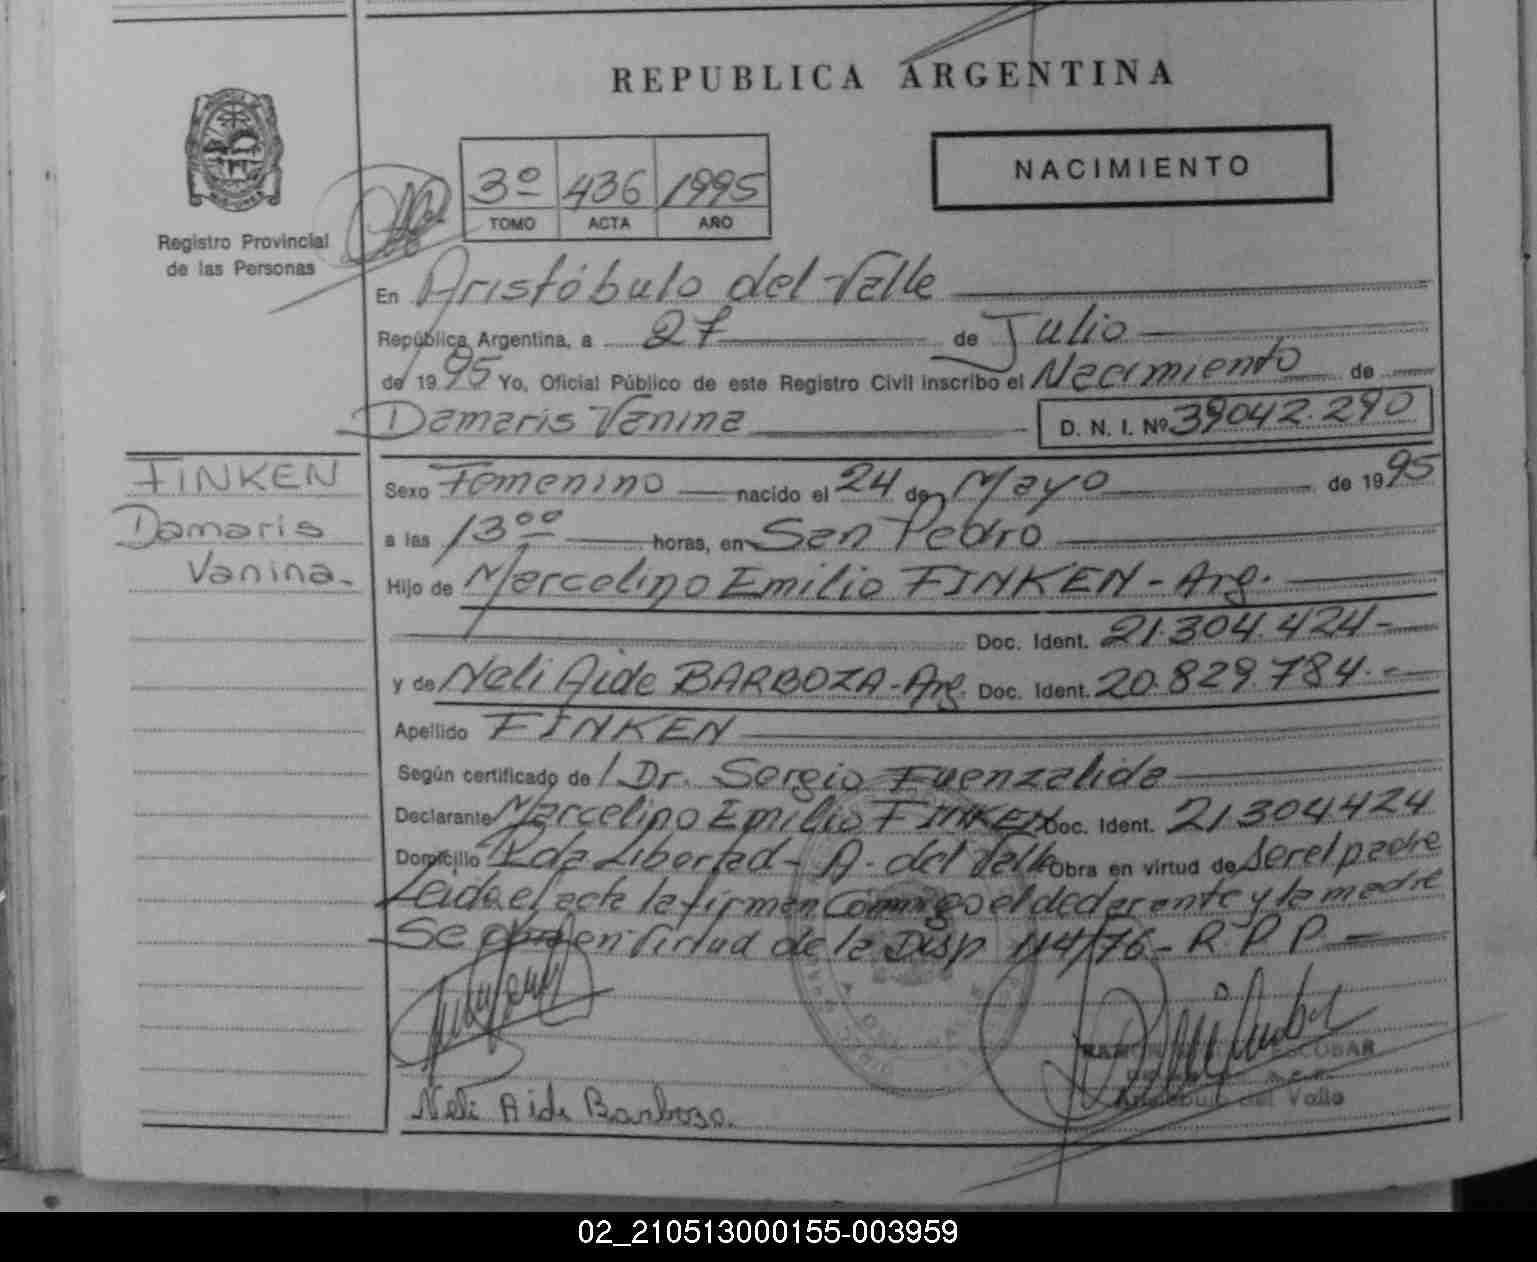 REPUBLICA ARGENTINA
NACIMIENTO
3º 436 1995
TOMO ACTA AÑO
Registro Provincial
de las Personas
En Aristóbulo del Valle
República Argentina, a 27 de Julio
de 1995 Yo, Oficial Público de este Registro Civil inscribo el Nacimiento de
Damaris Vanina D. N. I. Nº 39042.290
FINKEN
Damaris
Vanina.
Sexo Femenino nacido el 24 de Mayo de 1995
a las 13⁰⁰ horas, en San Pedro
Hijo de Marcelino Emilio FINKEN - Arg.
Doc. Ident. 21.304.424-
y de Neli Aide BARBOZA - Arg. Doc. Ident. 20.829.784.-
Apellido FINKEN
Según certificado de Dr. Sergio Fuenzalida
Declarante Marcelino Emilio FINKEN Doc. Ident. 21304424
Domicilio Pda Libertad - A. del Valle Obra en virtud de Ser el padre
Leida el acta la firman Conmigo el declarante y la madre
Se en Virtud de la Disp 114/76 - R.P.P.
ESCOBAR
del Valle
Neli Aide Barboza.
02_210513000155-003959